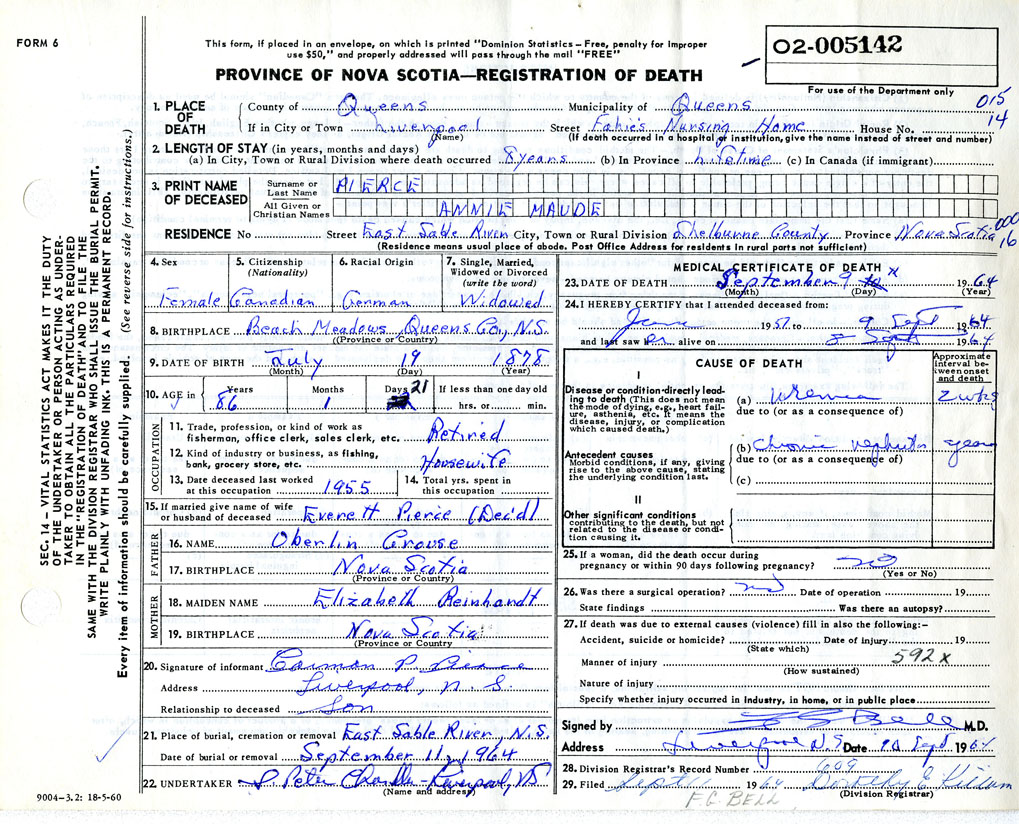 FORM 6
This form, if placed in an envelope, on which is printed "Dominion Statistics – Free, penalty for improper
use $50," and properly addressed will pass through the mail "FREE"
PROVINCE OF NOVA SCOTIA—REGISTRATION OF DEATH
02-005142
For use of the Department only
015
14
1. PLACE OF DEATH { County of Queens Municipality of Queens
If in City or Town Liverpool Street Fahie's Nursing Home House No.
(Name) (If death occurred in a hospital or institution, give the name instead of street and number)
2. LENGTH OF STAY (in years, months and days)
(a) In City, Town or Rural Division where death occurred 8 years (b) In Province Lifetime (c) In Canada (if immigrant)
3. PRINT NAME OF DECEASED
Surname or Last Name PIERCE
All Given or Christian Names ANNIE MAUDE
000
16
RESIDENCE No Street East Sable River City, Town or Rural Division Shelburne County Province Nova Scotia
(Residence means usual place of abode. Post Office Address for residents in rural parts not sufficient)
4. Sex Female
5. Citizenship (Nationality) Canadian
6. Racial Origin German
7. Single, Married, Widowed or Divorced (write the word) Widowed
8. BIRTHPLACE Beach Meadows, Queens Co., N.S.
(Province or Country)
9. DATE OF BIRTH July 19 1878
(Month) (Day) (Year)
10. AGE in { Years 86 Months 1 Days 21 If less than one day old
hrs. or min.
OCCUPATION
11. Trade, profession, or kind of work as
fisherman, office clerk, sales clerk, etc. Retired
12. Kind of industry or business, as fishing,
bank, grocery store, etc. Housewife
13. Date deceased last worked at this occupation 1955
14. Total yrs. spent in this occupation
15. If married give name of wife
or husband of deceased Everett Pierce (Dec'd)
FATHER
16. NAME Oberlin Crouse
17. BIRTHPLACE Nova Scotia
(Province or Country)
MOTHER
18. MAIDEN NAME Elizabeth Reinhardt
19. BIRTHPLACE Nova Scotia
(Province or Country)
20. Signature of informant Carmon P. Pierce
Address Liverpool, N.S.
Relationship to deceased Son
21. Place of burial, cremation or removal East Sable River, N.S.
Date of burial or removal September 11, 1964
22. UNDERTAKER Peter Chandler - Liverpool, NS
(Name and address)
9004–3.2: 18-5-60
MEDICAL CERTIFICATE OF DEATH
23. DATE OF DEATH September 9 x 1964
(Month) (Day) (Year)
24. I HEREBY CERTIFY that I attended deceased from:
June 1957 to 9 Sept 1964
and last saw her alive on 8 Sept 1964
CAUSE OF DEATH
Approximate interval between onset and death
I
Disease or condition directly leading to death (This does not mean the mode of dying, e.g., heart failure, asthenia, etc. It means the disease, injury, or complication which caused death.)
(a) Uremia 2 wks
due to (or as a consequence of)
Antecedent causes
Morbid conditions, if any, giving rise to the above cause, stating the underlying condition last.
(b) Chronic nephritis years
due to (or as a consequence of)
(c)
II
Other significant conditions
contributing to the death, but not related to the disease or condition causing it.
25. If a woman, did the death occur during
pregnancy or within 90 days following pregnancy? no
(Yes or No)
26. Was there a surgical operation? no Date of operation 19
State findings Was there an autopsy?
27. If death was due to external causes (violence) fill in also the following:–
Accident, suicide or homicide? Date of injury 19
(State which)
592 x
Manner of injury
(How sustained)
Nature of injury
Specify whether injury occurred in industry, in home, or in public place
Signed by F G Bell M.D.
Address Liverpool N.S. Date 10 Sept 1964
28. Division Registrar's Record Number 609
29. Filed Sept 11 1964 Dorothy E Killam
(Division Registrar)
F.G. BELL
SEC. 14 – VITAL STATISTICS ACT MAKES IT THE DUTY
OF THE UNDERTAKER OR PERSON ACTING AS UNDER-
TAKER TO OBTAIN ALL THE PARTICULARS REQUIRED
IN THE "REGISTRATION OF DEATH" AND TO FILE THE
SAME WITH THE DIVISION REGISTRAR WHO SHALL ISSUE THE BURIAL PERMIT.
WRITE PLAINLY WITH UNFADING INK. THIS IS A PERMANENT RECORD.
Every item of information should be carefully supplied. (See reverse side for instructions.)